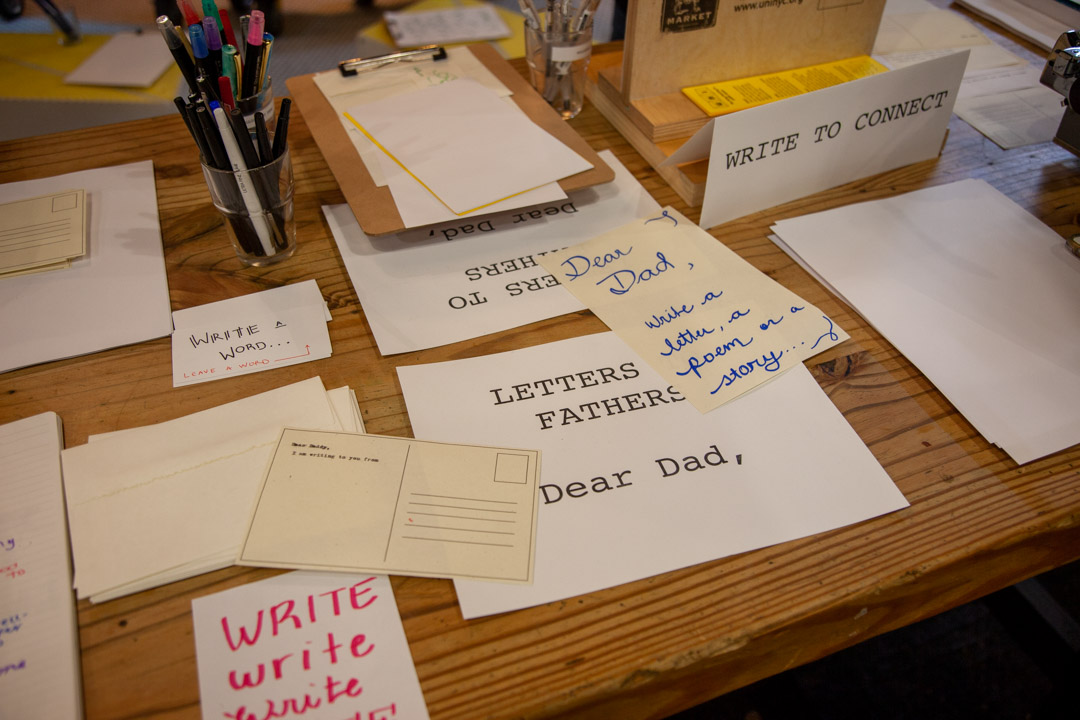 MARKET
WRITE TO CONNECT
Dear Dad,
LETTERS TO
FATHERS
Dear
Dad,
write a
letter, a
poem or a
story...
WRITE A
WORD...
LEAVE A WORD
LETTERS
FATHERS
Dear Dad,
Dear Daddy,
I am writing to you from
WRITE
write
write